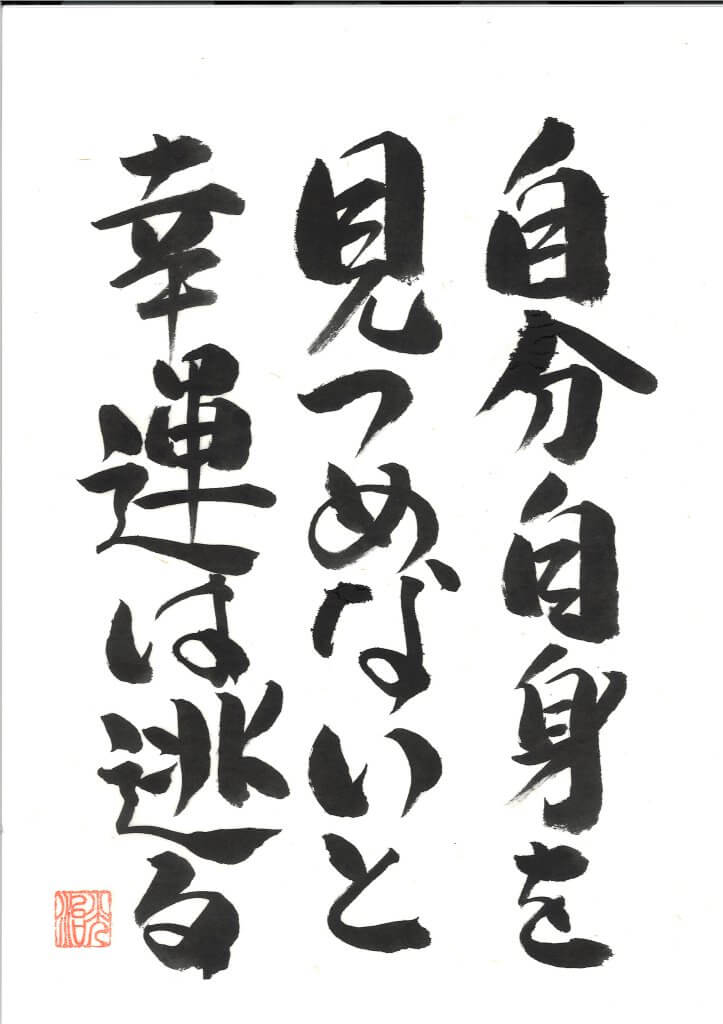 自分自身を
見つめないと
幸運は逃る